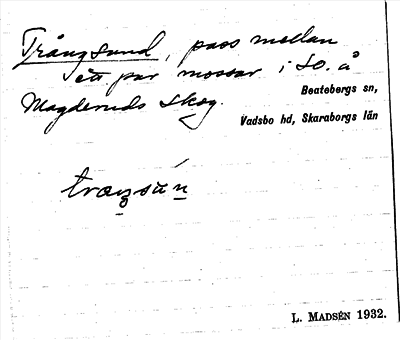 Trångsund, pass mellan
ett par mossar i SO. å
Magderuds skog.
Beatebergs sn,
Vadsbo hd, Skaraborgs län
L. MADSÉN 1932.